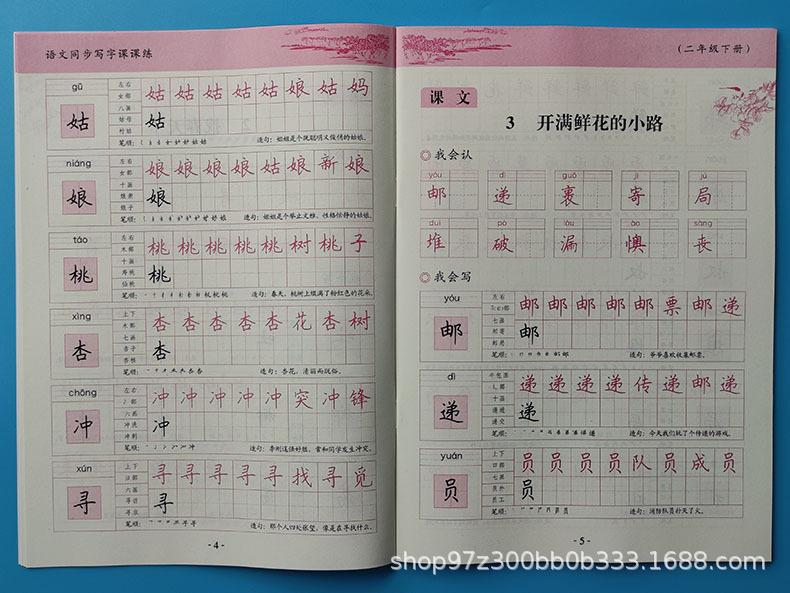 语文同步写字课课练
gū
左右
女部
八画
姑母
村姑
姑
姑姑姑姑姑姑娘姑妈
姑
笔顺:
造句:姐姐是个既聪明又俊俏的姑娘。
niáng
左右
女部
十画
娘亲
娘子
娘
娘娘娘娘娘姑娘新娘
娘
笔顺:
造句:姐姐是个举止文雅、性格恬静的姑娘。
táo
左右
木部
十画
寿桃
仙桃
桃
桃桃桃桃桃桃树桃子
桃
笔顺:
造句:春天,桃树上缀满了粉红色的花朵。
xìng
上下
木部
七画
杏子
杏核
杏
杏杏杏杏杏杏花杏树
杏
笔顺:
造句:杏花,清丽而脱俗。
chōng
左右
冫部
六画
冲洗
冲刺
冲
冲冲冲冲冲冲突冲锋
冲
笔顺:
造句:李刚逞强好胜,常和同学发生冲突。
xún
上下
六画
寻
寻寻寻寻寻找寻觅
寻
笔顺:
造句:那个人四处张望,像是在寻找什么。
- 4 -
(二年级下册)
课文
3 开满鲜花的小路
我会认
yóu dì guǒ jì jú
邮 递 裹 寄 局
duī pò lòu ào sàng
堆 破 漏 懊 丧
我会写
yóu
左右
七画
邮寄
邮局
邮
邮邮邮邮邮邮票邮递
邮
笔顺:
造句:爷爷喜欢收集邮票。
dì
半包围
辶部
十画
递进
递交
递
递递递递递传递邮递
递
笔顺:
造句:今天我们玩了个传递的游戏。
yuán
上下
口部
七画
员外
员工
员
员员员员员队员成员
员
笔顺:
造句:消防队员扑灭了火。
- 5 -
shop97z300bb0b333.1688.com